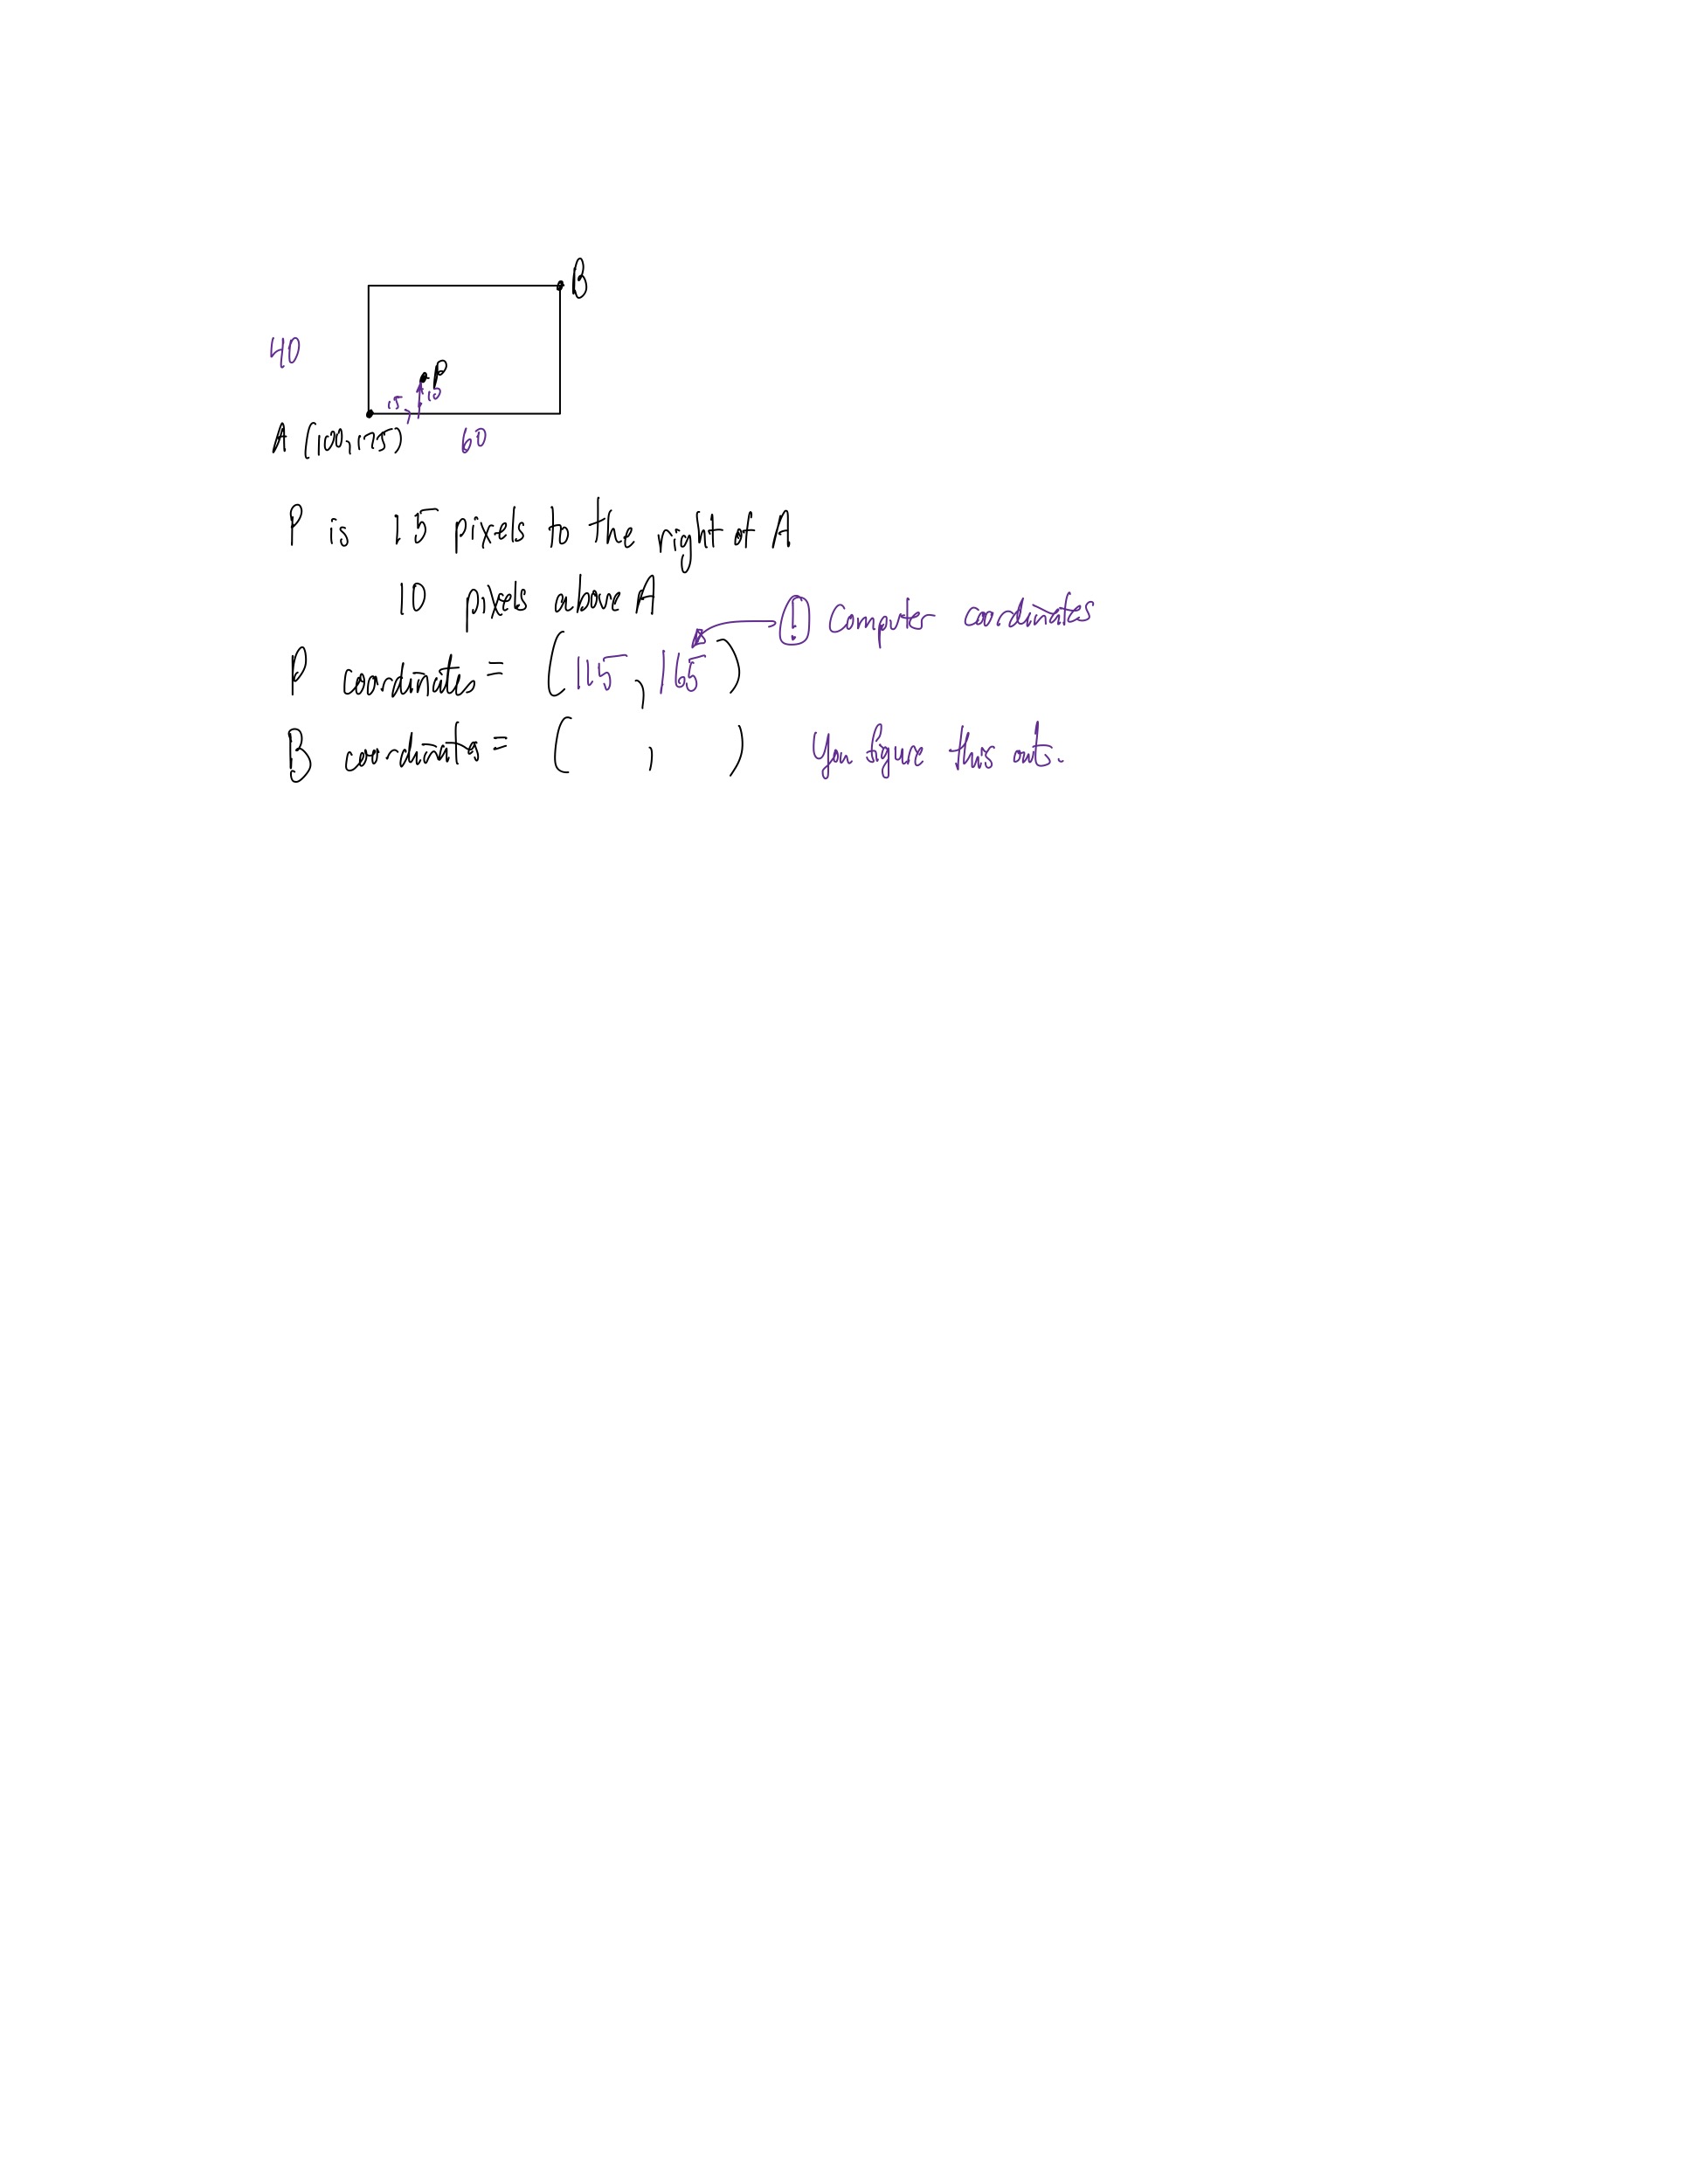 B
40
P
15
10
A (100, 175)
60
P is 15 pixels to the right of A
10 pixels above A
! Computer coordinates
P coordinates = (115, 165)
B coordinates = ( , ) You figure this out.